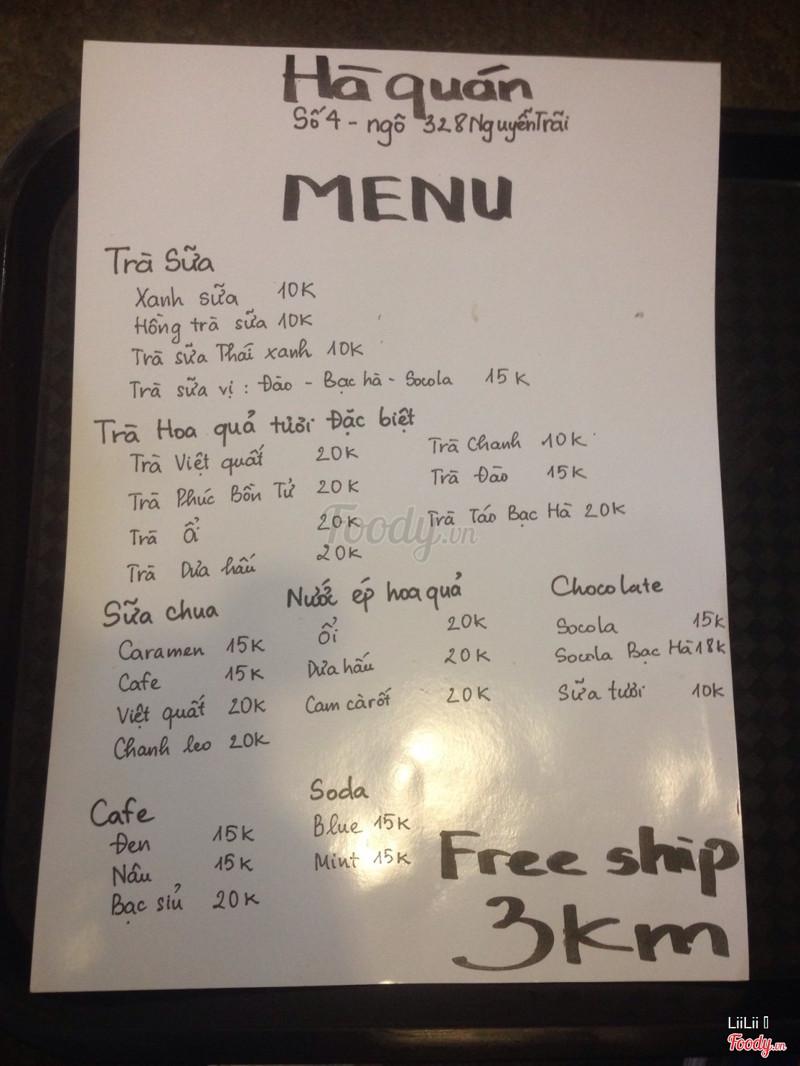 Hà quán
Số 4 - ngõ 328 Nguyễn Trãi
MENU
Trà Sữa
Xanh sữa 10K
Hồng trà sữa 10K
Trà sữa Thái xanh 10K
Trà sữa vị : Đào - Bạc hà - Socola 15K
Trà Hoa quả tươi Đặc biệt
Trà Việt quất 20K
Trà Phúc Bồn Tử 20K
Trà Ổi 20K
Trà Dưa hấu 20K
Trà Chanh 10K
Trà Đào 15K
Trà Táo Bạc Hà 20K
Foody.vn
Sữa chua
Caramen 15K
Cafe 15K
Việt quất 20K
Chanh leo 20K
Nước ép hoa quả
Ổi 20K
Dưa hấu 20K
Cam cà rốt 20K
Chocolate
Socola 15K
Socola Bạc Hà 18K
Sữa tươi 10K
Cafe
Đen 15K
Nâu 15K
Bạc siủ 20K
Soda
Blue 15K
Mint 15K
Free ship
3km
LiiLii
Foody.vn